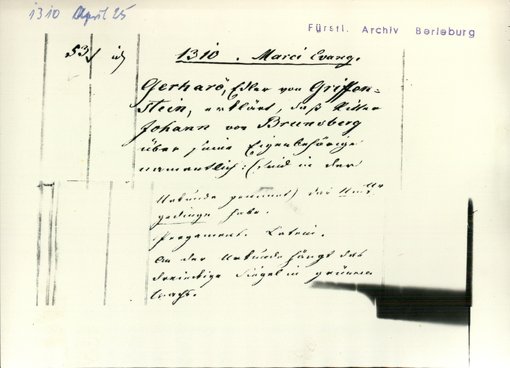 1310 April 25
Fürstl. Archiv Berleburg
53
1310. Marci Evang.
Gerhard, Edler von Griffen-
stein, erklärt, daß Ritter
Johann von Brunsberg
über seine Eigenbehörige
namentlich: (sind in der
Urkunde genannt) das
gedinge habe.
Pergament. Latein.
An der Urkunde hängt das
dreieckige Siegel in grünem
Wachs.